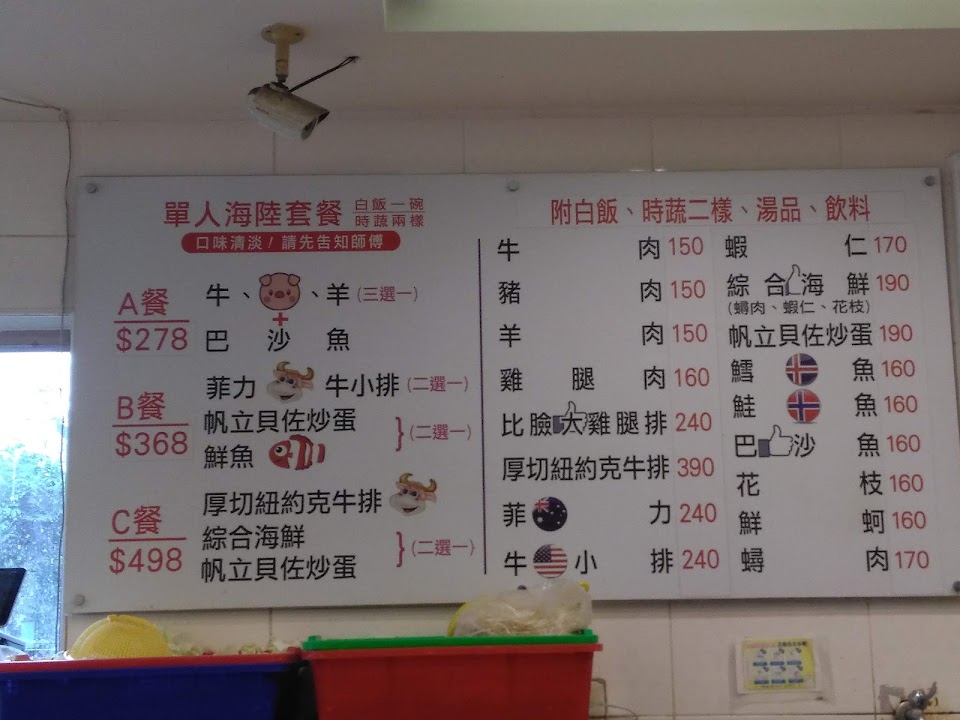 單人海陸套餐 白飯一碗
時蔬兩樣
口味清淡！請先告知師傅
A餐
$278
牛、、羊(三選一)
+
巴沙魚
B餐
$368
菲力 牛小排(二選一)
帆立貝佐炒蛋
鮮魚
}(二選一)
C餐
$498
厚切紐約克牛排
綜合海鮮
帆立貝佐炒蛋
}(二選一)
附白飯、時蔬二樣、湯品、飲料
牛肉150
豬肉150
羊肉150
雞腿肉160
比臉大雞腿排240
厚切紐約克牛排390
菲力240
牛小排240
蝦仁170
綜合海鮮190
(蟳肉、蝦仁、花枝)
帆立貝佐炒蛋190
鱈魚160
鮭魚160
巴沙魚160
花枝160
鮮蚵160
蟳肉170